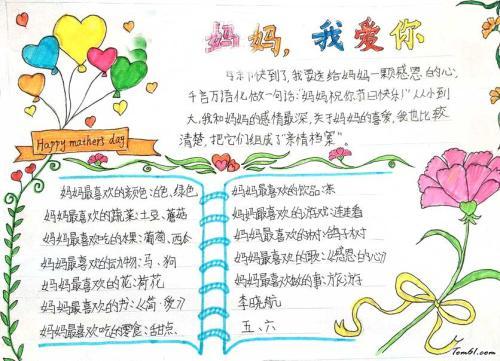 妈妈,我爱你
快到了,我要送给妈妈一颗感恩的心,
千言万语化做一句话:"妈妈祝你节日快乐!"从小到
大,我和妈妈的感情最深,关于妈妈的喜爱,我也比较
清楚,把它们组成了"亲情档案"。
Happy mathers day
妈妈最喜欢的颜色:白色、绿色
妈妈最喜欢的蔬菜:土豆、蘑菇
妈妈最喜欢吃的水果:葡萄、西瓜
妈妈最喜欢的动物:马、狗
妈妈最喜欢的花:荷花
妈妈最喜欢的书:《简·爱》
妈妈最喜欢吃的零食:甜点
妈妈最喜欢的饮品:茶
妈妈最喜欢的游戏:连连看
妈妈最喜欢的树:鸽子树
妈妈最喜欢的歌:《感恩的心》
妈妈最喜欢做的事:旅游
李晓航
五、六
Tom61.com